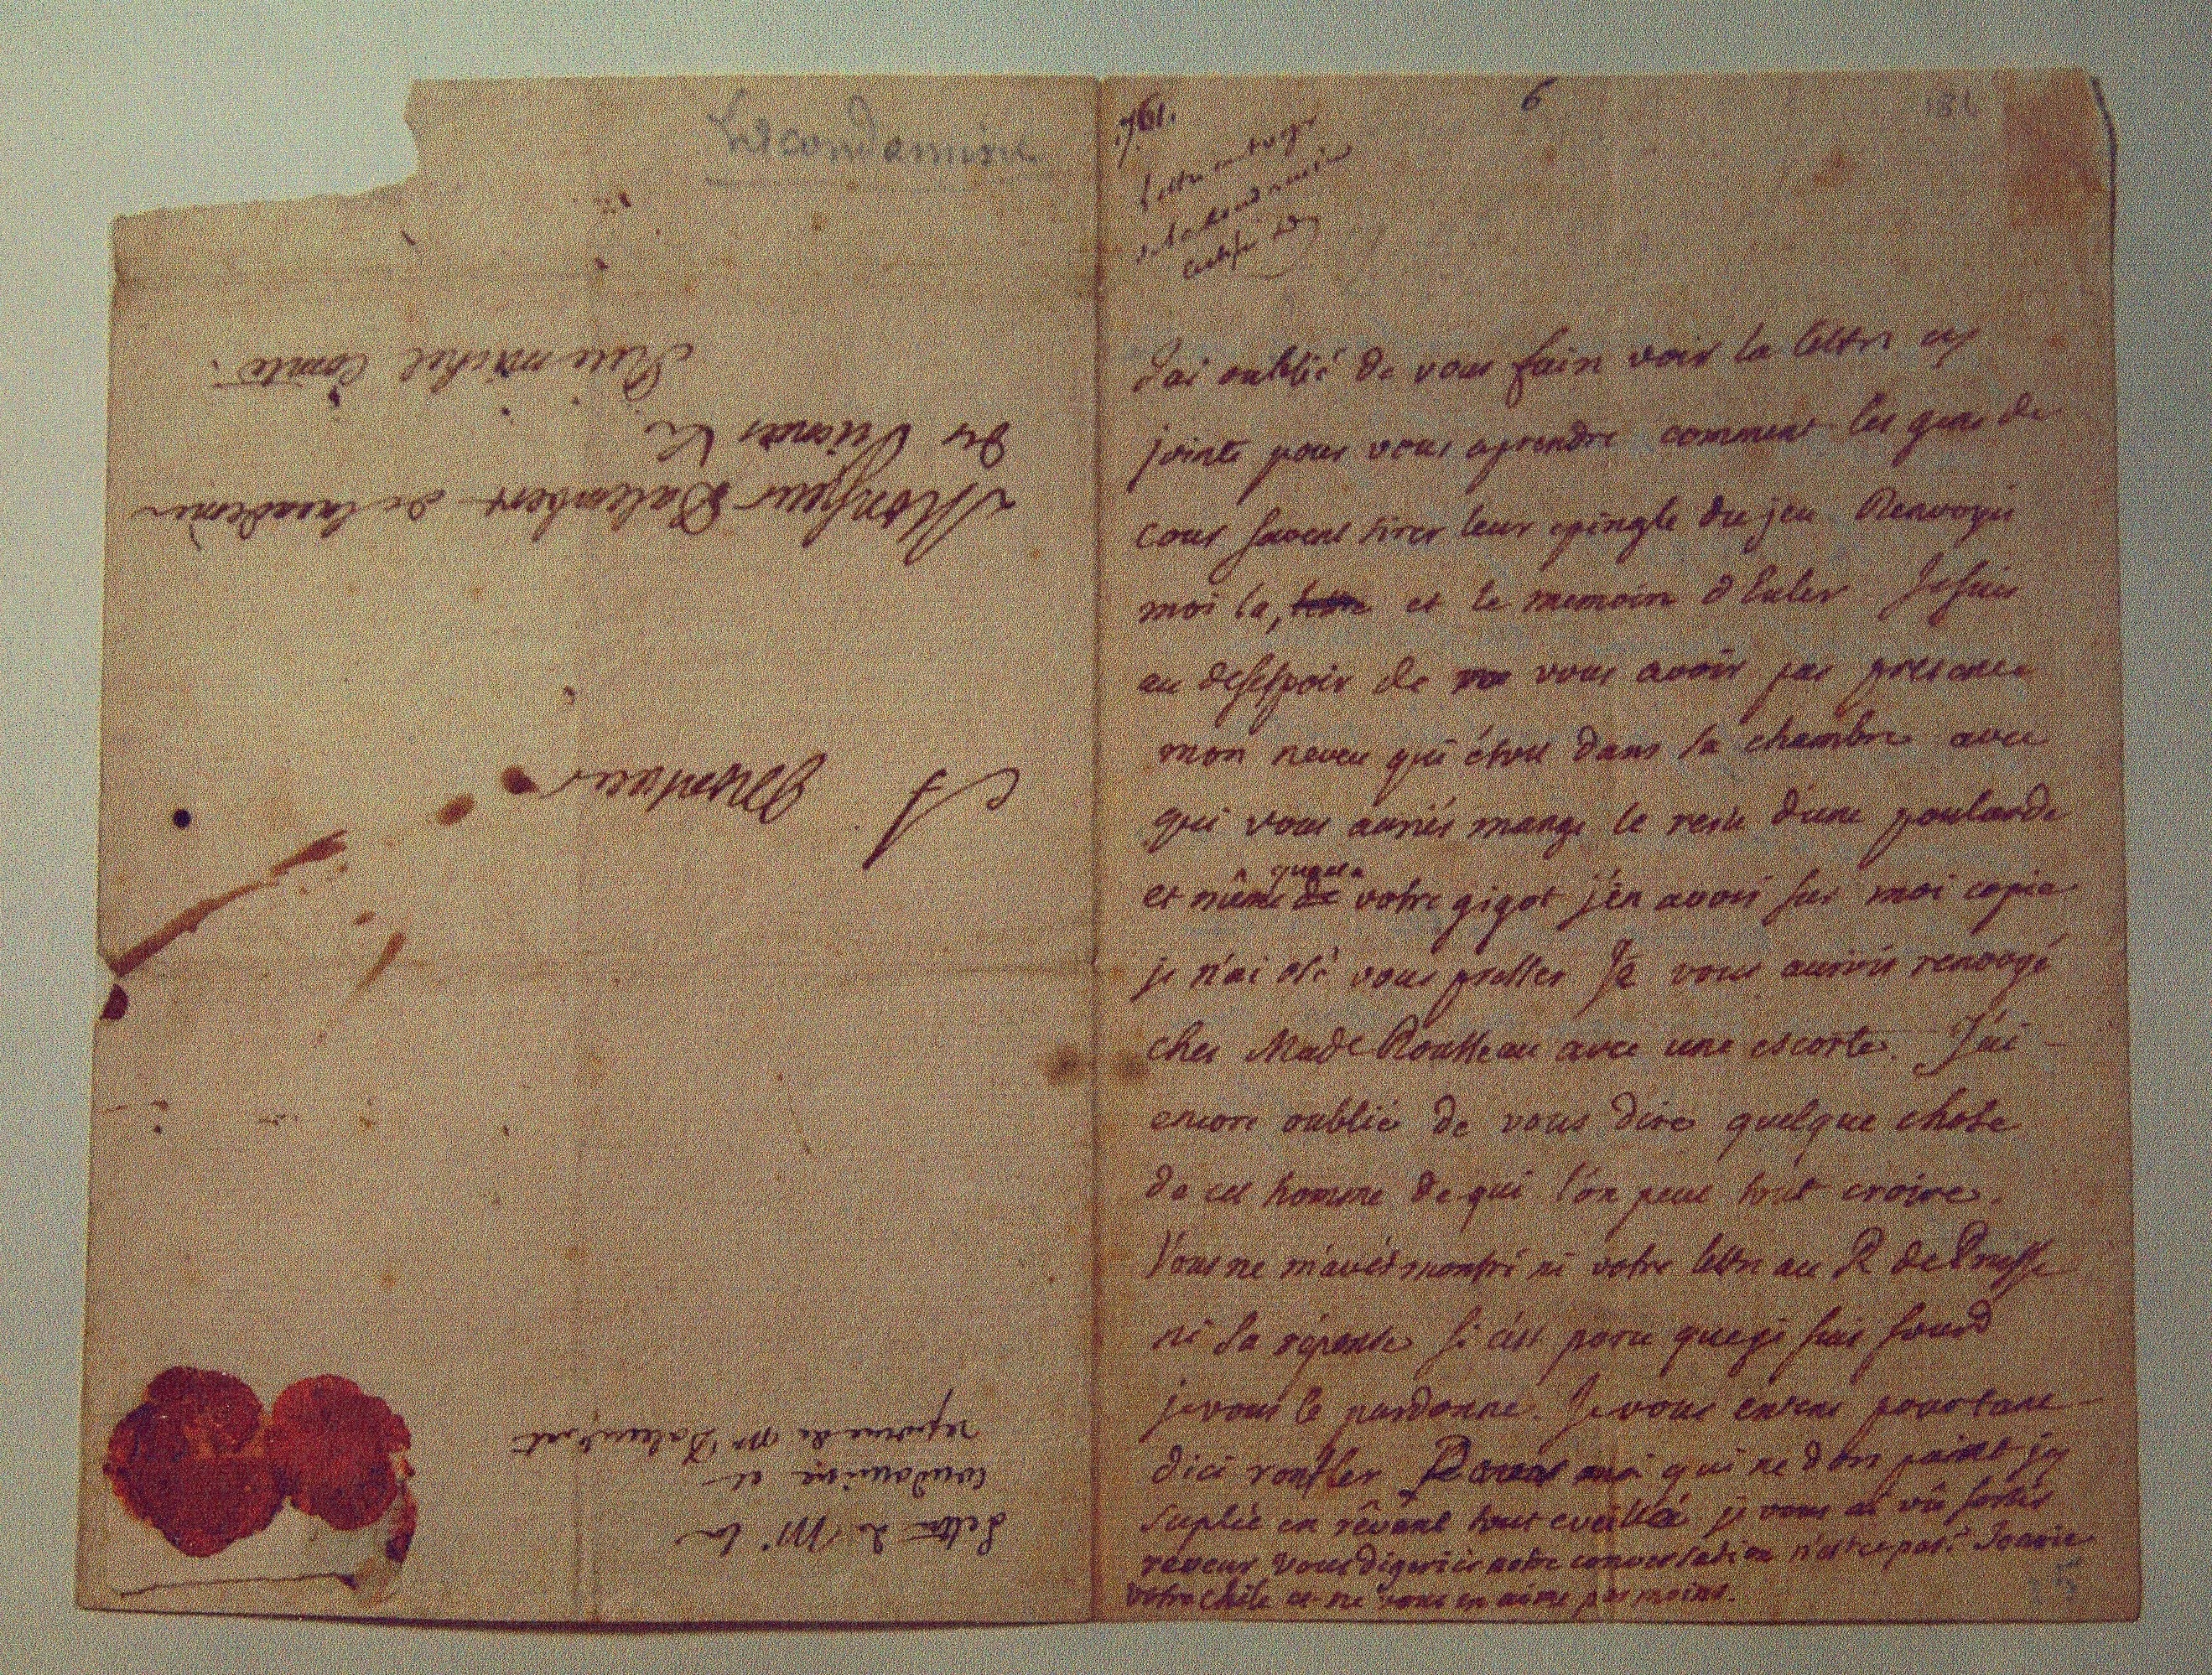 Lacondamine
A Monsieur
Monsieur Dalembert de lacademie
des Sciences &c
Rue michel Comte.
Lettre de Mr la
condamine et
reponse de Mr Dalembert
1761.
6
J'ai oublié de vous faire voir la lettre cy
jointe pour vous aprendre comment les gens de
cour savent tirer leur epingle du jeu Renvoyés
moi la, et le memoire d'Euler Je suis
au desespoir de vous avoir pas presenté
mon neveu qui étoit dans la chambre avec
qui vous auriés mangé le reste d'une poularde
et même votre gigot j'en avois sur moi copie
je n'ai osé vous presser Je vous aurois renvoyé
ches Made Rousseau avec une escorte. J'ai
encore oublié de vous dire quelque chose
de cet homme de qui l'on peut tout croire.
Vous ne m'avés montré ni votre lettre au R de Prusse
ni sa réponse si c'est parce que je suis sourd
je vous le pardonne. Je vous entens pourtant
d'ici ronfler moi qui ne dors point j'y
suplée en rêvant tout eveillé je vous ai vû
reveur vous digeriés notre conversation n'est ce pas?
votre et ne vous en aime pas moins.